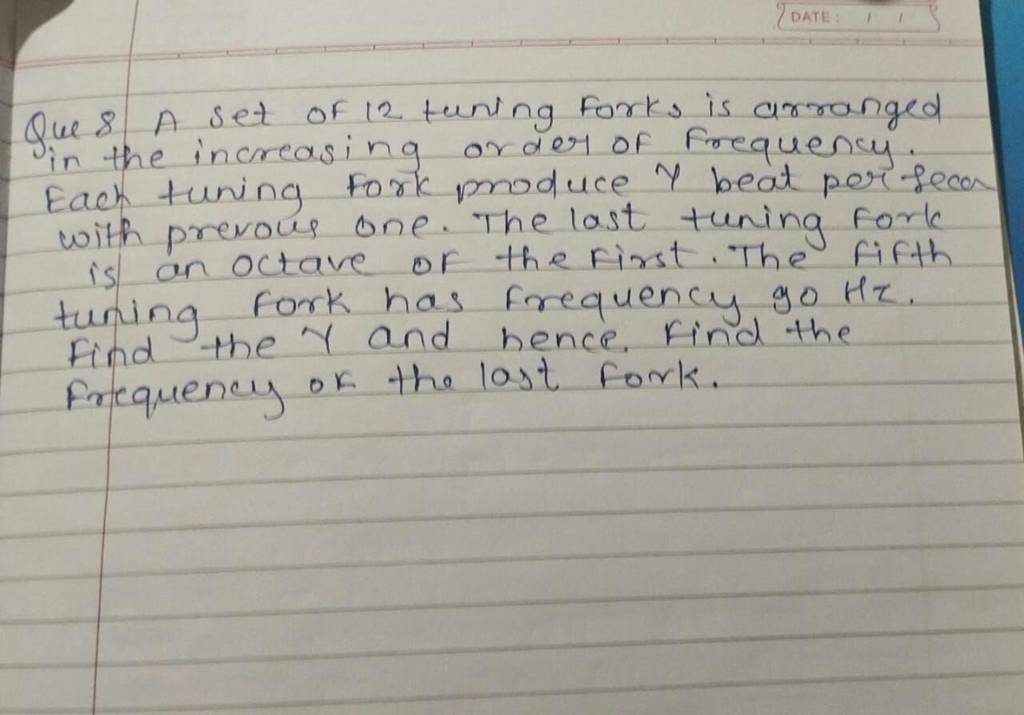 DATE: / /
Que 8 A set of 12 tuning forks is arranged
in the increasing order of frequency.
Each tuning fork produce Y beat per secon
with prevous one. The last tuning fork
is an octave of the first. The fifth
tuning fork has frequency 90 Hz.
Find the Y and hence. Find the
frequency of the last fork.